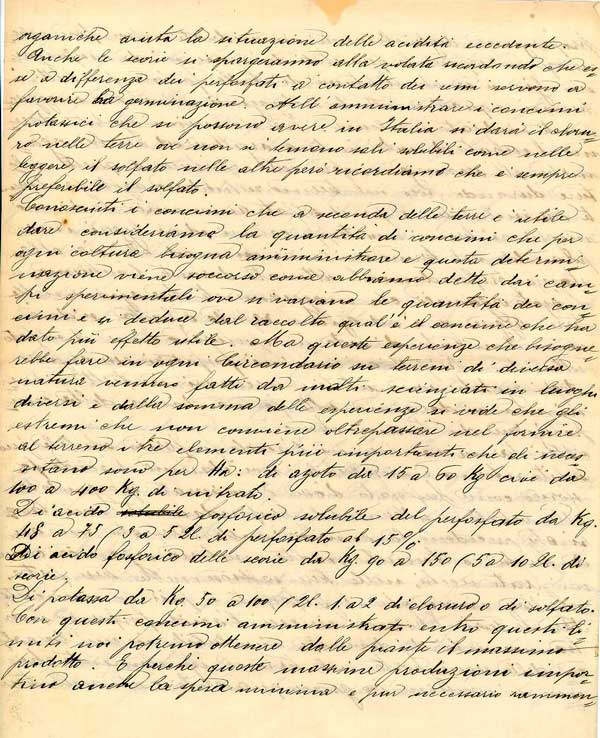 organiche aiuta la situazione delle acidità eccedente.
Anche le scorie si spargeranno alla volata ricordando che es=
se a differenza dei perfosfati a contatto dei semi servono a
favorire la germinazione. Nell' amministrare i concimi
potassici che si possono avere in Italia si darà il cloru=
ro nelle terre ove non si temono sali solubili come nelle
leggere, il solfato nelle altre però ricordiamo che è sempre
preferibile il solfato.
Conosciuti i concimi che a seconda delle terre è utile
dare consideriamo la quantità di concimi che per
ogni coltura bisogna amministrare e questa determi=
nazione viene soccorsa come abbiamo detto dai cam=
pi sperimentali ove si variano le quantità dei con=
cimi e si deduce dal raccolto qual'è il concime che ha
dato più effetto utile. Ma queste esperienze che bisogne=
rebbe fare in ogni Circondario su terreni di diversa
natura vennero fatte da molti scienziati in luoghi
diversi e dalla somma delle esperienze si vide che gli
estremi che non conviene oltrepassare nel fornire
al terreno i tre elementi più importanti che di neces=
sitano sono per Ha: di azoto da 15 a 60 Kg cioè da
100 a 400 Kg. di nitrato.
Di acido solubile fosforico solubile del perfosfato da Kg.
48 a 75 (3 a 5 2l. di perfosfato al 15%.
Di acido fosforico delle scorie da Kg. 90 a 150 (5 a 10 2l. di
scorie.
Di potassa da Kg 50 a 100 (2l. 1 a 2 di cloruro o di solfato.
Con questi concimi amministrati entro questi li=
miti noi potremo ottenere dalle piante il massimo
prodotto. E perchè queste massime produzioni impor=
tino anche la spesa minima è pur necessario rammen=